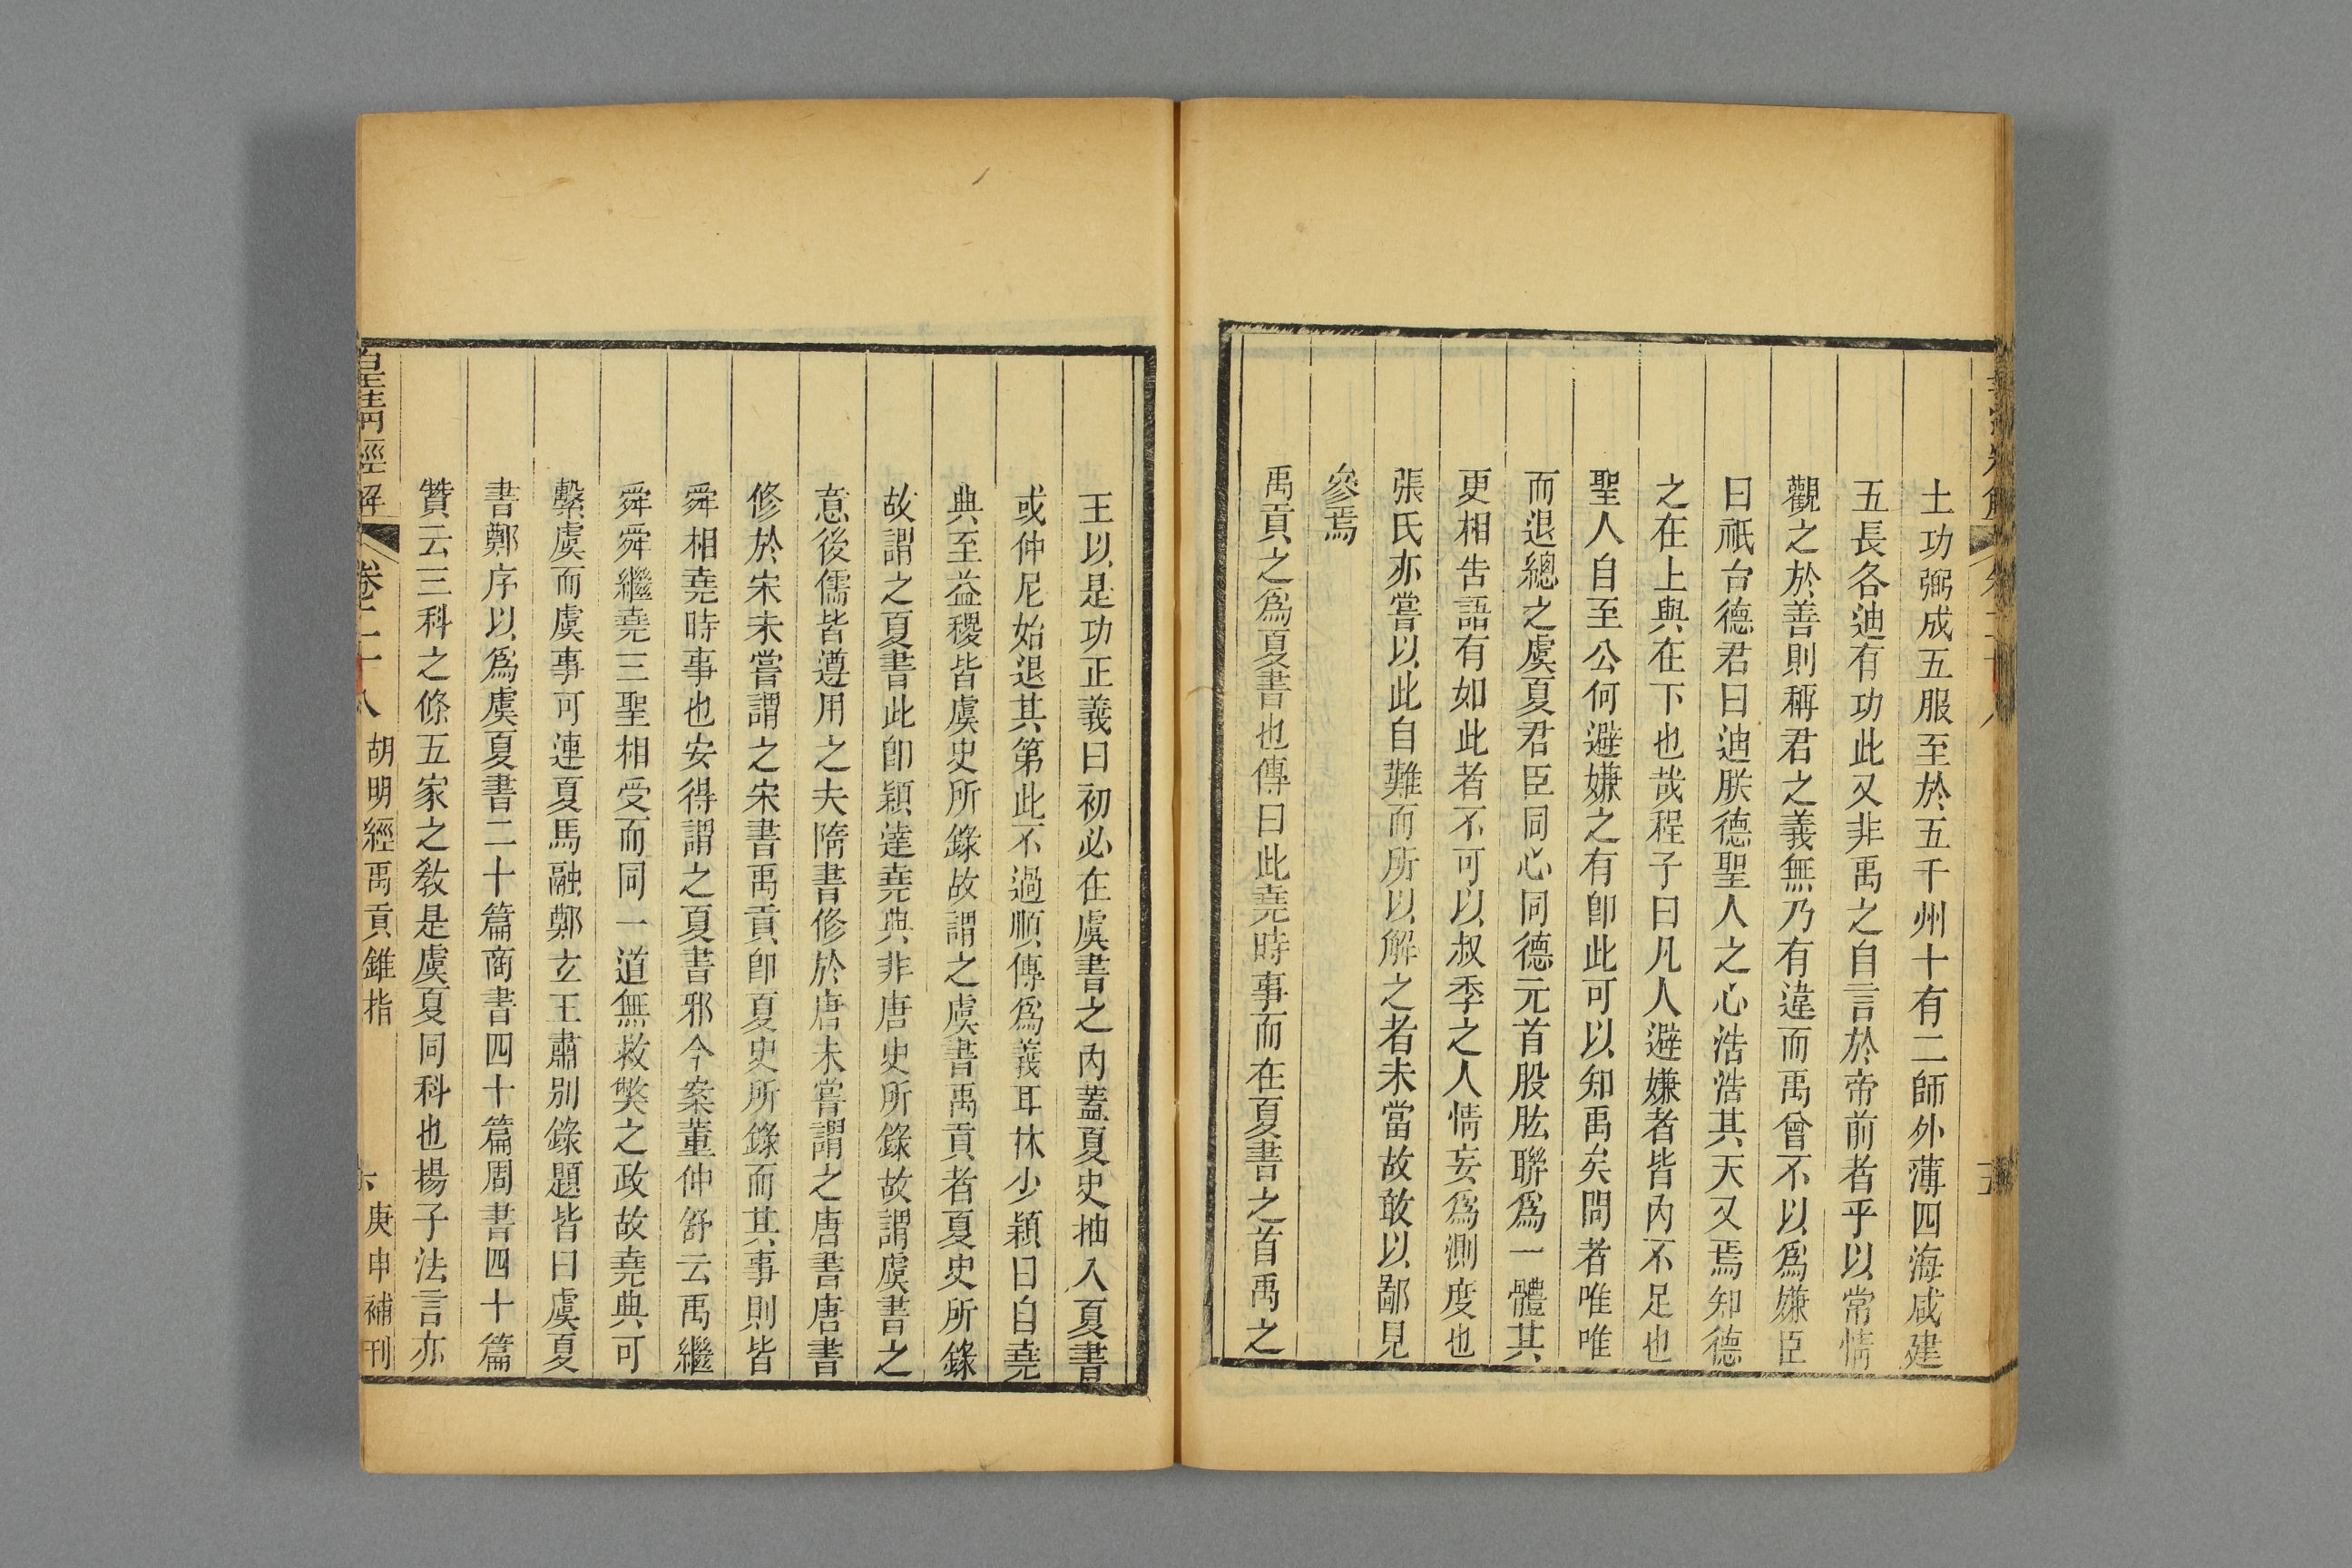 土功弼成五服至於五千州十有二師外薄四海咸建
五長各迪有功此又非禹之自言於帝前者乎以常情
觀之於善則稱君之義無乃有違而禹曾不以爲嫌臣
曰祇台德君曰迪朕德聖人之心浩浩其天又焉知德
之在上與在下也哉程子曰凡人避嫌者皆內不足也
聖人自至公何避嫌之有卽此可以知禹矣問者唯唯
而退總之虞夏君臣同心同德元首股肱聯爲一體其
更相告語有如此者不可以叔季之人情妄爲測度也
張氏亦嘗以此自難而所以解之者未當故敢以鄙見
參焉
禹貢之爲夏書也傳曰此堯時事而在夏書之首禹之
王以是功正義曰初必在虞書之內蓋夏史抽入夏書
或仲尼始退其第此不過順傳爲義耳林少穎曰自堯
典至益稷皆虞史所錄故謂之虞書禹貢者夏史所錄
故謂之夏書此卽穎達堯典非唐史所錄故謂虞書之
意後儒皆遵用之夫隋書修於唐未嘗謂之唐書唐書
修於宋未嘗謂之宋書禹貢卽夏史所錄而其事則皆
舜相堯時事也安得謂之夏書邪今案董仲舒云禹繼
舜舜繼堯三聖相受而同一道無救獘之政故堯典可
繫虞而虞事可連夏馬融鄭玄王肅別錄題皆曰虞夏
書鄭序以爲虞夏書二十篇商書四十篇周書四十篇
贊云三科之條五家之教是虞夏同科也揚子法言亦
皇淸經解 卷二十八 胡明經禹貢錐指 六 庚申補刊